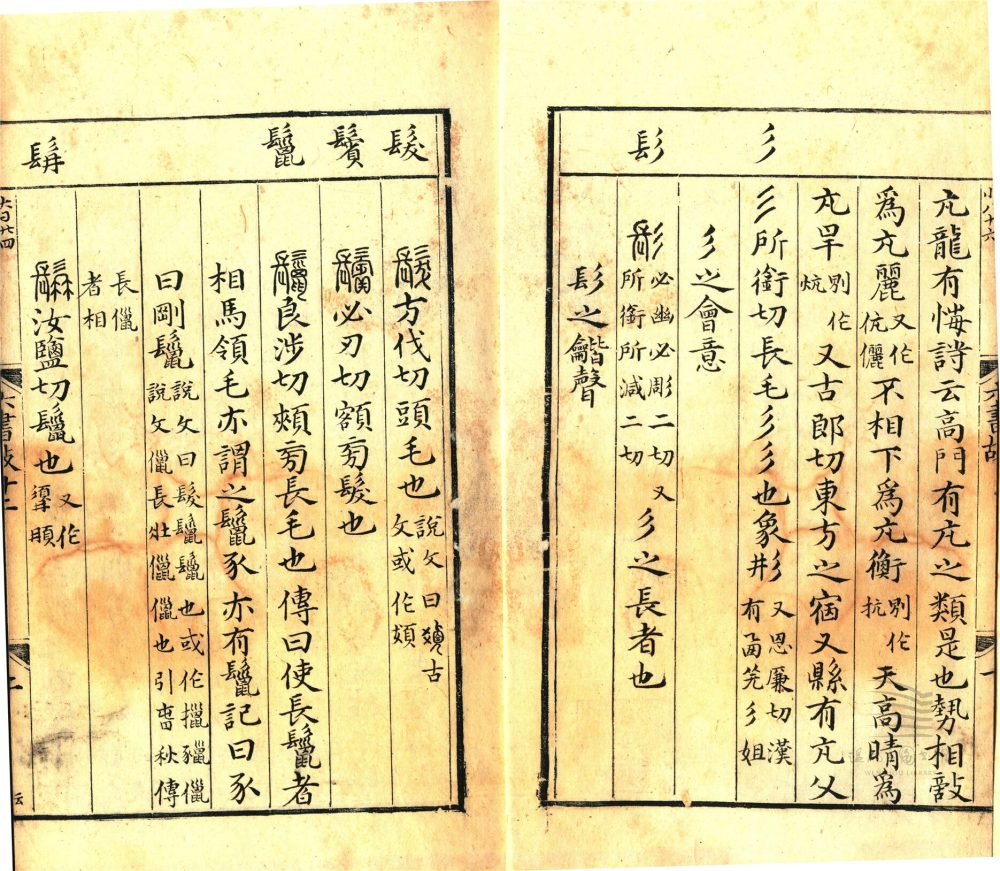 彡
髟
亢龍有悔詩云高門有亢之類是也勢相敵
爲亢麗又作伉儷不相下爲亢衡別作抗天高晴爲
亢旱別作炕又古郎切東方之宿又縣有亢父
所銜切長毛彡彡也象形又思廉切漢有西羌彡姐
彡之會意
必幽必彫二切又所銜所減二切彡之長者也
髟之龤聲
髮
鬢
鬣
髥
方伐切頭毛也說文曰古文或作
必刃切額旁髮也
良涉切頰旁長毛也傳曰使長鬣者
相馬領毛亦謂之鬣豕亦有鬣記曰豕
曰剛鬣說文曰髮鬣鬣也或作儠說文儠長壯儠儠也引春秋傳
長儠者相
汝鹽切鬣也又作
六書故
六書故十二
二